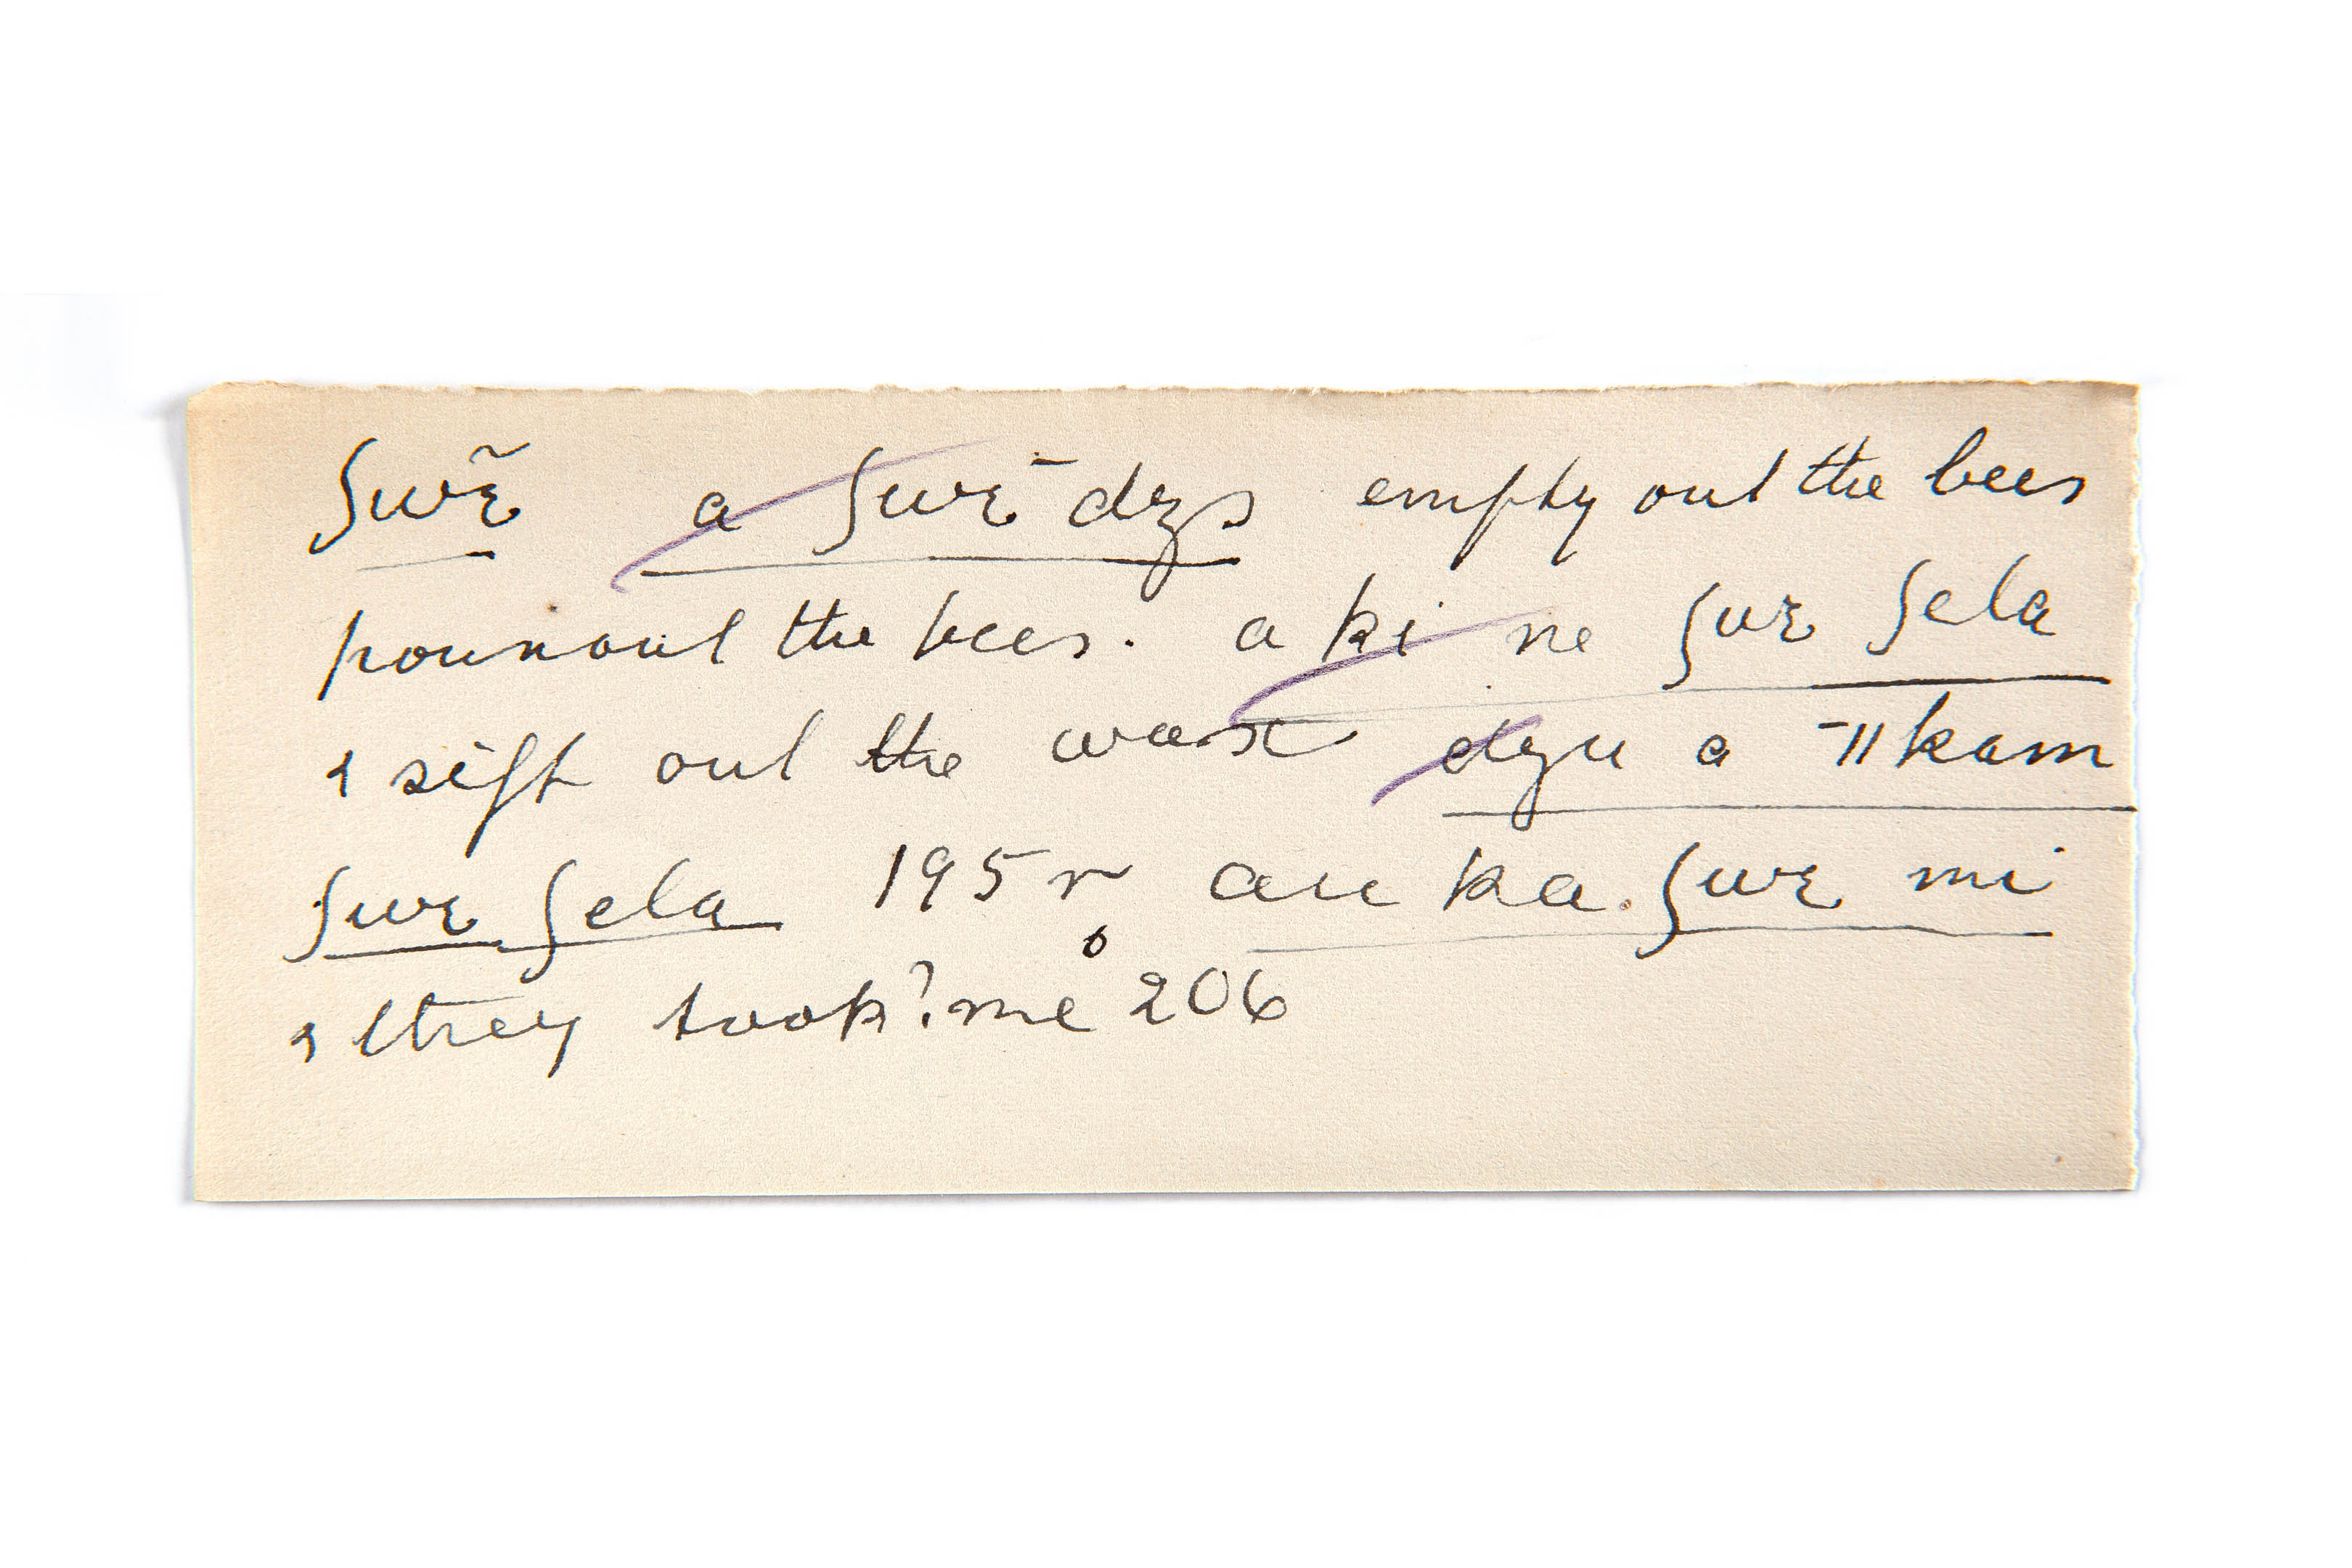 ʃwɛ̃ a ʃwɛ̄ dzs empty out the bees
pour out the bees. a ki ne ʃwɛ ʃela
& sift out the wax dzu a ǁkam
ʃwɛ ʃela 195 r au ka. ʃwɛ mi
& they took? me 206